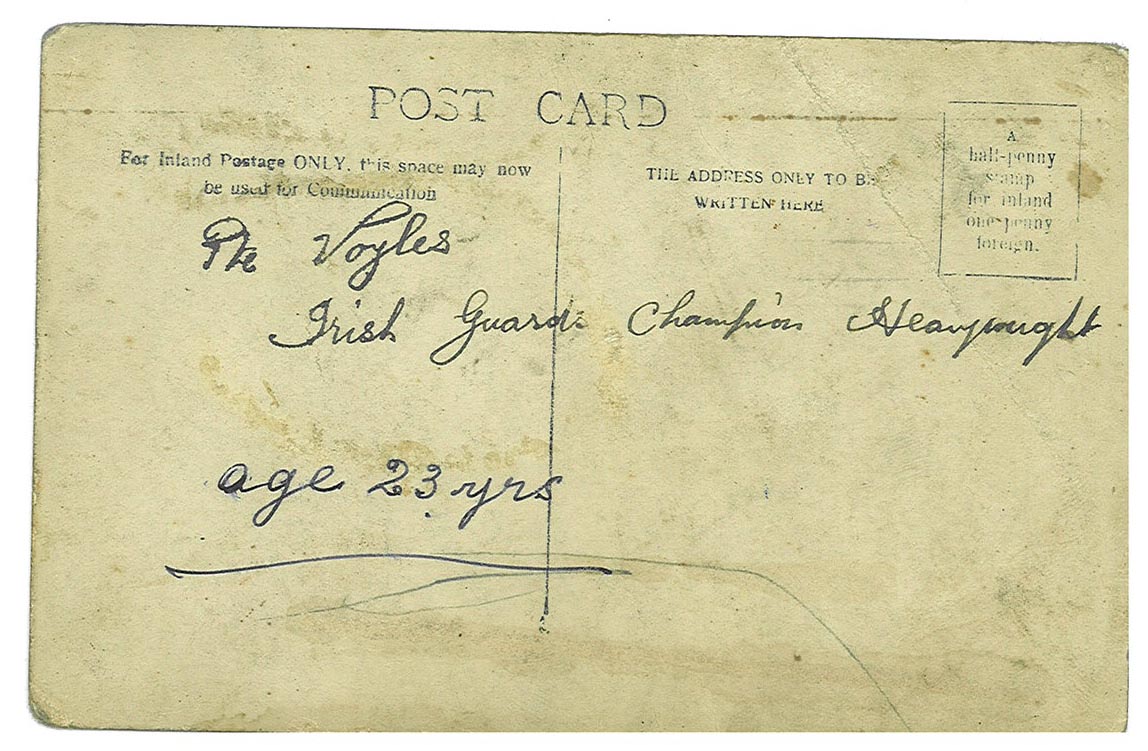 POST CARD
For Inland Postage ONLY, this space may now
be used for Communication
THE ADDRESS ONLY TO BE
WRITTEN HERE
A
half-penny
stamp
for inland
one-penny
foreign.
Pte Voyles
Irish Guards Champion Heavywught
age 23 yrs